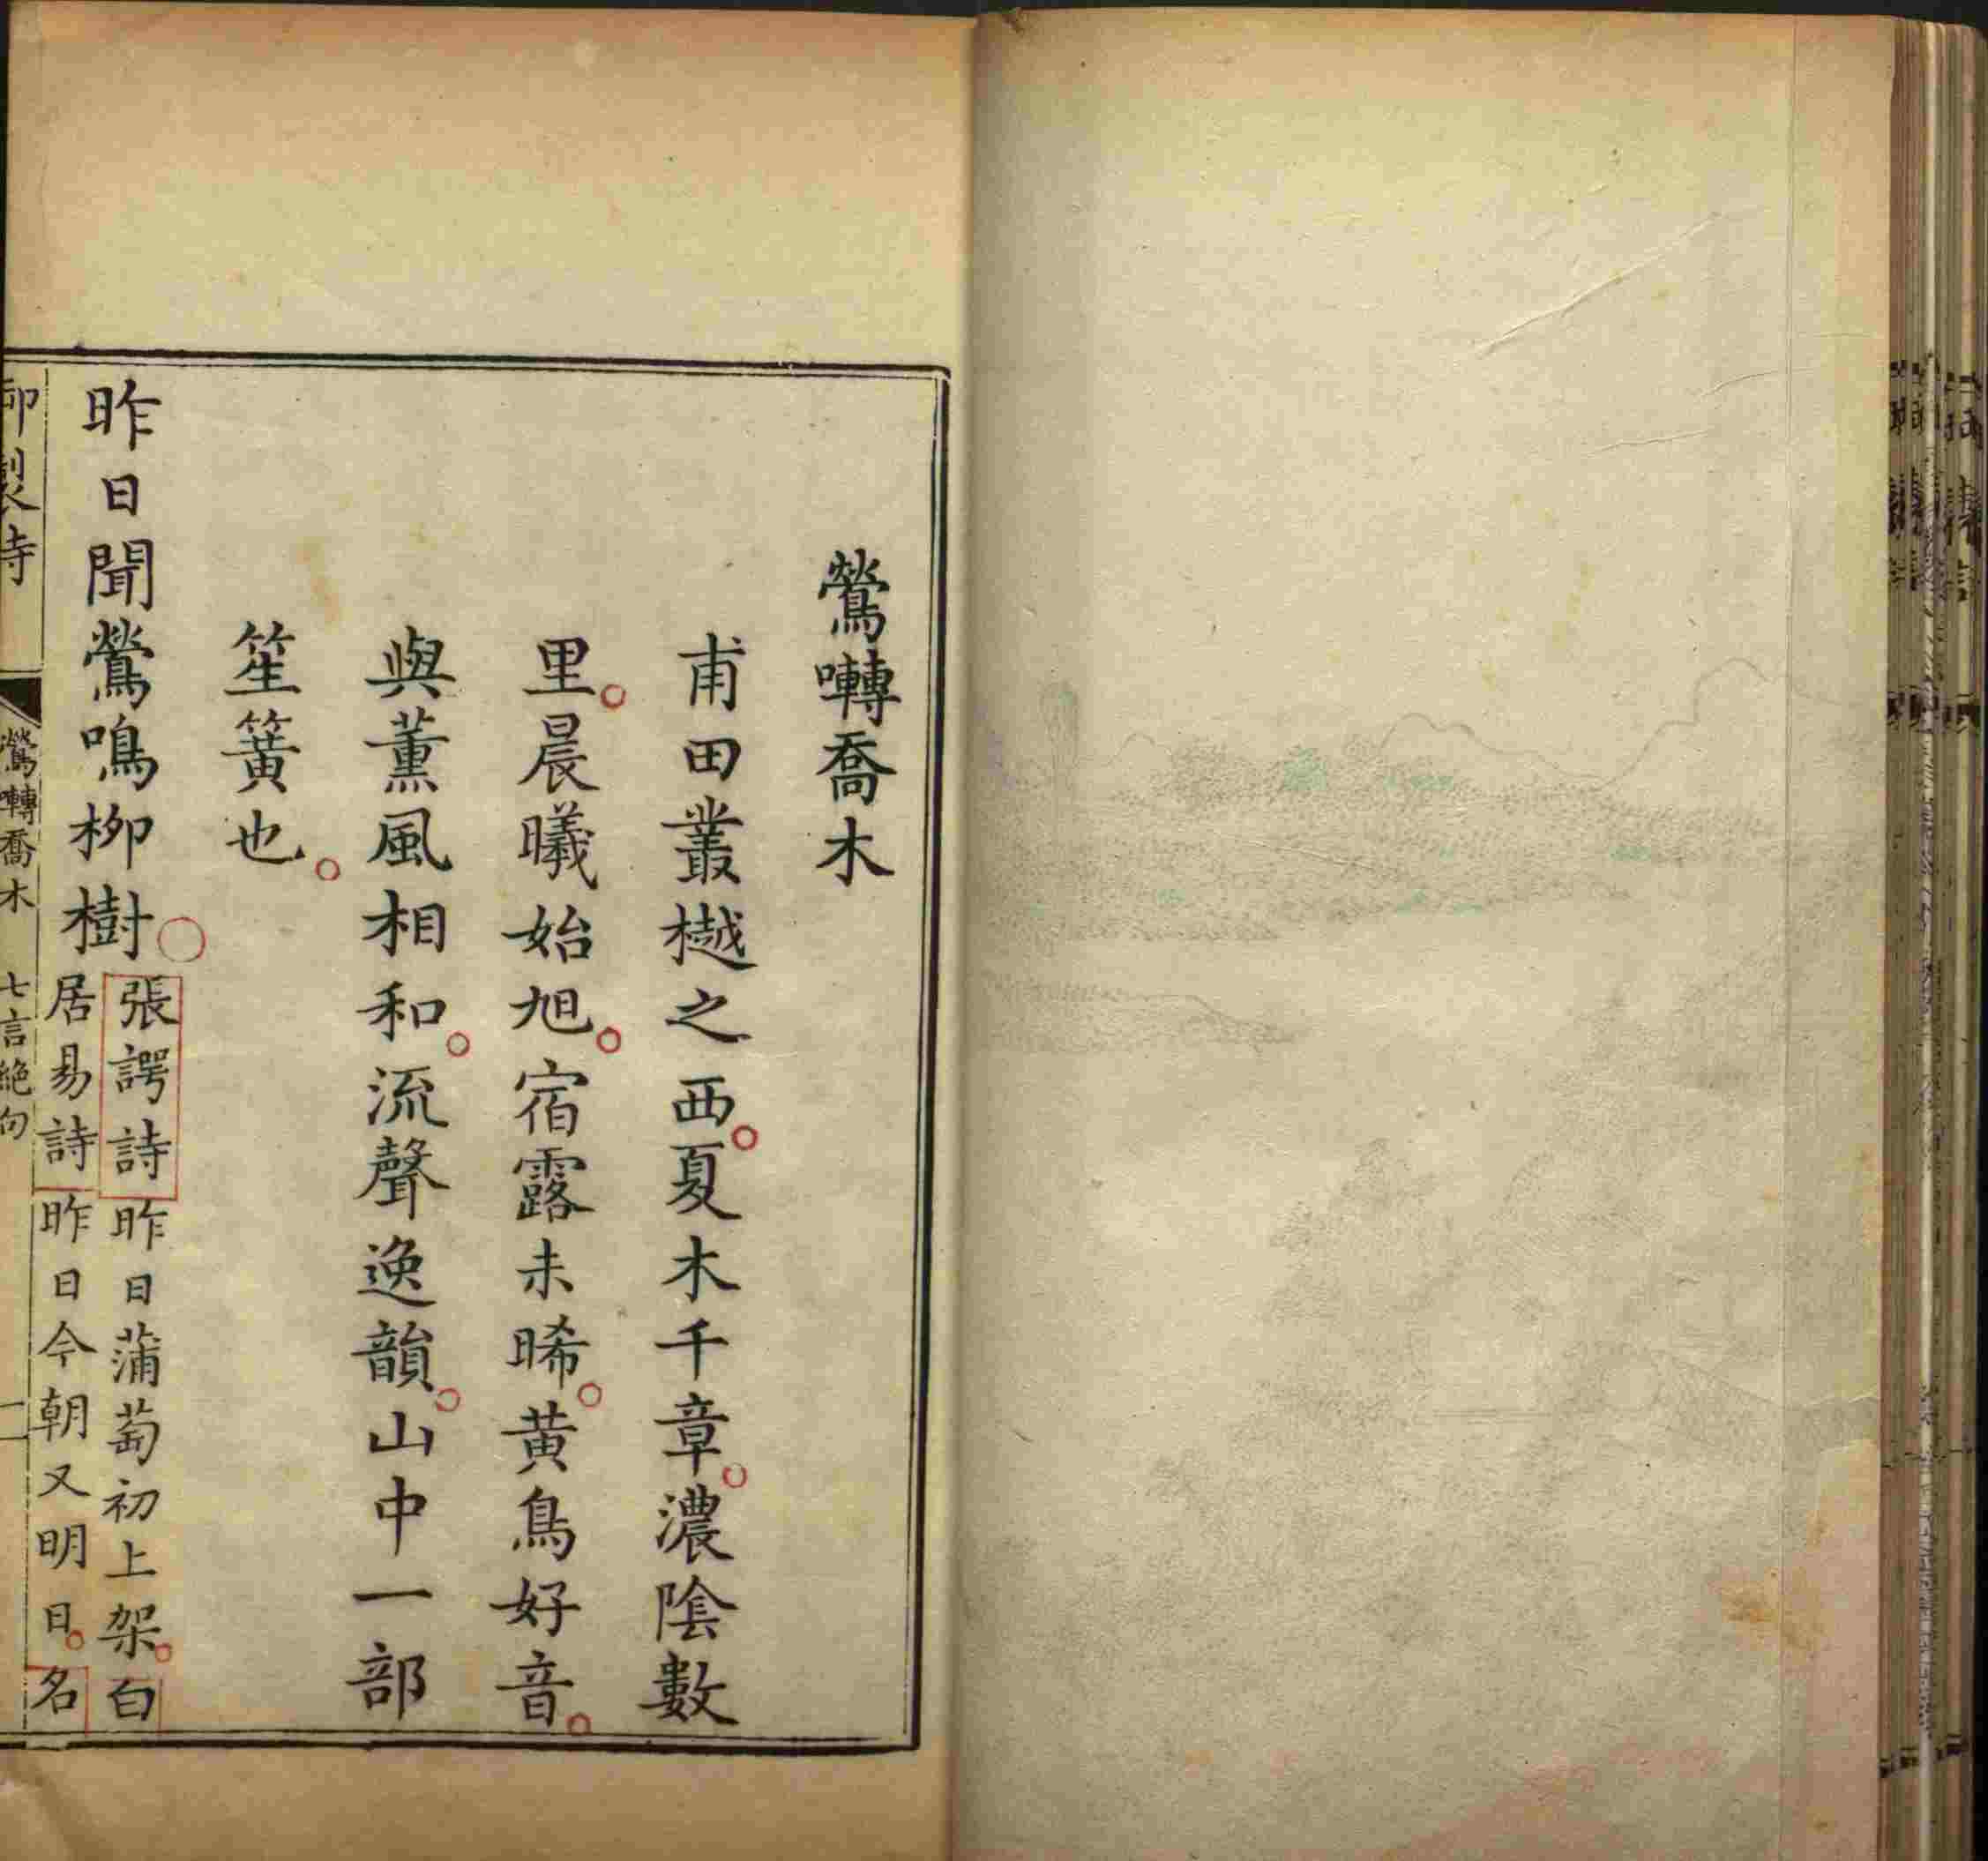 鶯囀喬木
甫田叢樾之西夏木千章濃陰數
里晨曦始旭宿露未晞黃鳥好音
與薰風相和流聲逸韻山中一部
笙簧也
昨日聞鶯鳴柳樹
張諤詩昨日蒲萄初上架白
居易詩昨日今朝又明日名
御製詩
鶯囀喬木 七言絕句 二